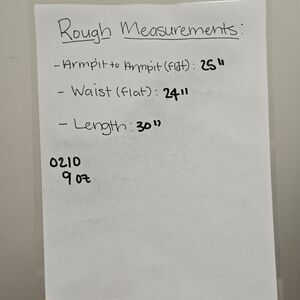 Rough Measurements:
- Armpit to Armpit (flat): 25"
- Waist (flat): 24"
- Length: 30"
0210
9 oz